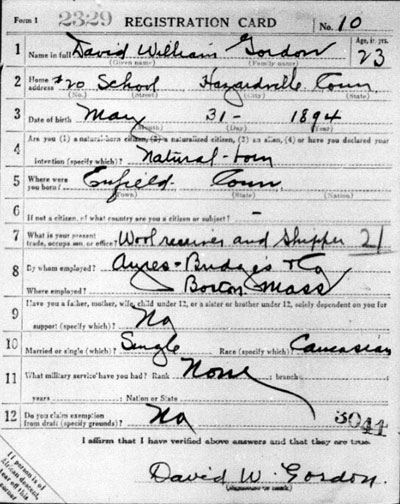 Form 1 2329 REGISTRATION CARD No. 10
1 Name in full David William Gordon Age, in yrs. 23
(Given name) (Family name)
2 Home address #20 School Hazardville Conn
(No.) (Street) (City) (State)
3 Date of birth May 31- 1894
(Month) (Day) (Year)
4 Are you (1) a natural-born citizen, (2) a naturalized citizen, (3) an alien, (4) or have you declared your
intention (specify which)? Natural-born
5 Where were you born? Enfield Conn
(Town) (State) (Nation)
6 If not a citizen, of what country are you a citizen or subject? -
7 What is your present trade, occupation, or office? Wool receiver and Shipper 21
8 By whom employed? Ayres-Bridges & Co
Where employed? Boston Mass
9 Have you a father, mother, wife, child under 12, or a sister or brother under 12, solely dependent on you for
support (specify which)? No
10 Married or single (which)? Single Race (specify which)? Caucasian
11 What military service have you had? Rank None; branch
years; Nation or State
12 Do you claim exemption from draft (specify grounds)? No 3044
I affirm that I have verified above answers and that they are true.
David W. Gordon.
If person is of
African descent,
tear off this
corner